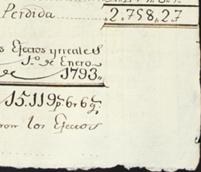 Perdida 2.758,,27
s Efectos y reales
1.º de Enero
de 1793.
15.119 p.s 6.. 6
ron los Efectos